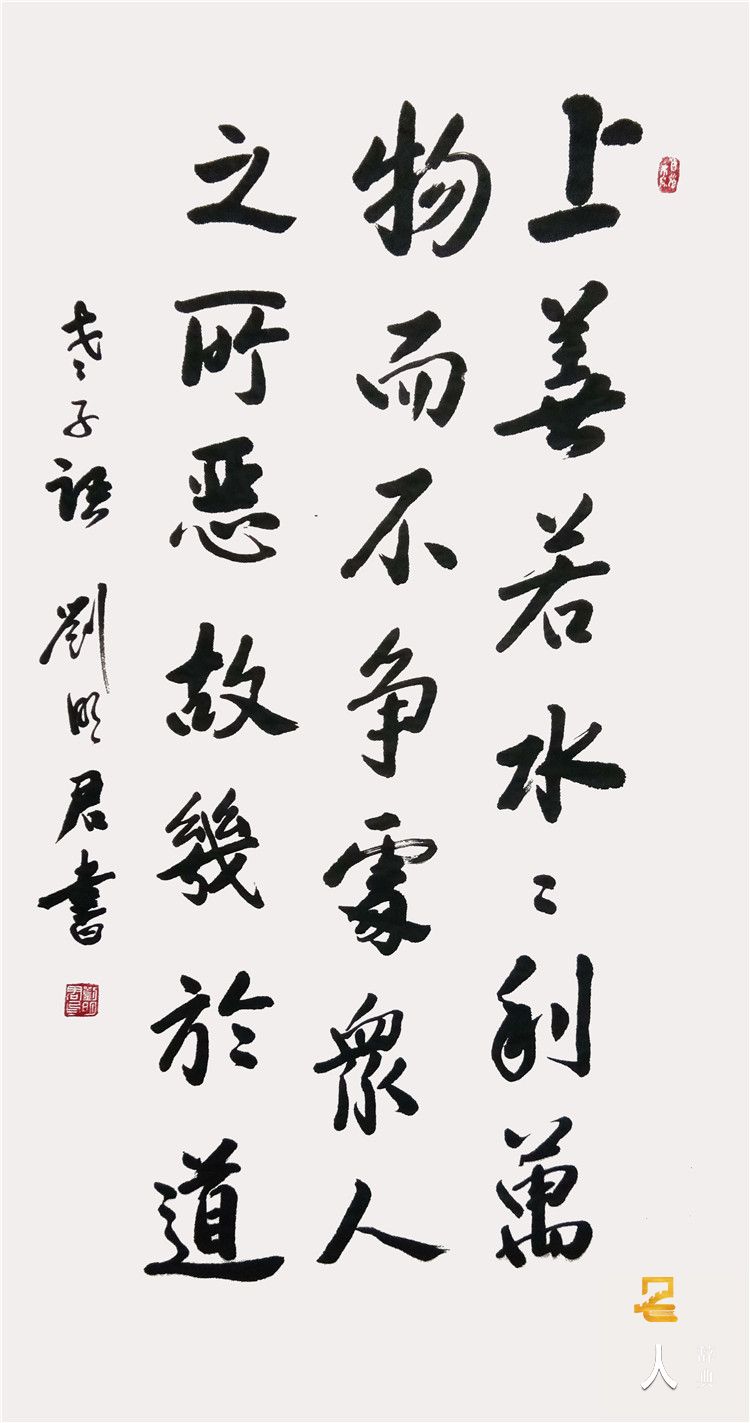 上善若水〻利萬
物而不争處衆人
之所惡故幾於道
老子語 劉明君書
名人
辞典